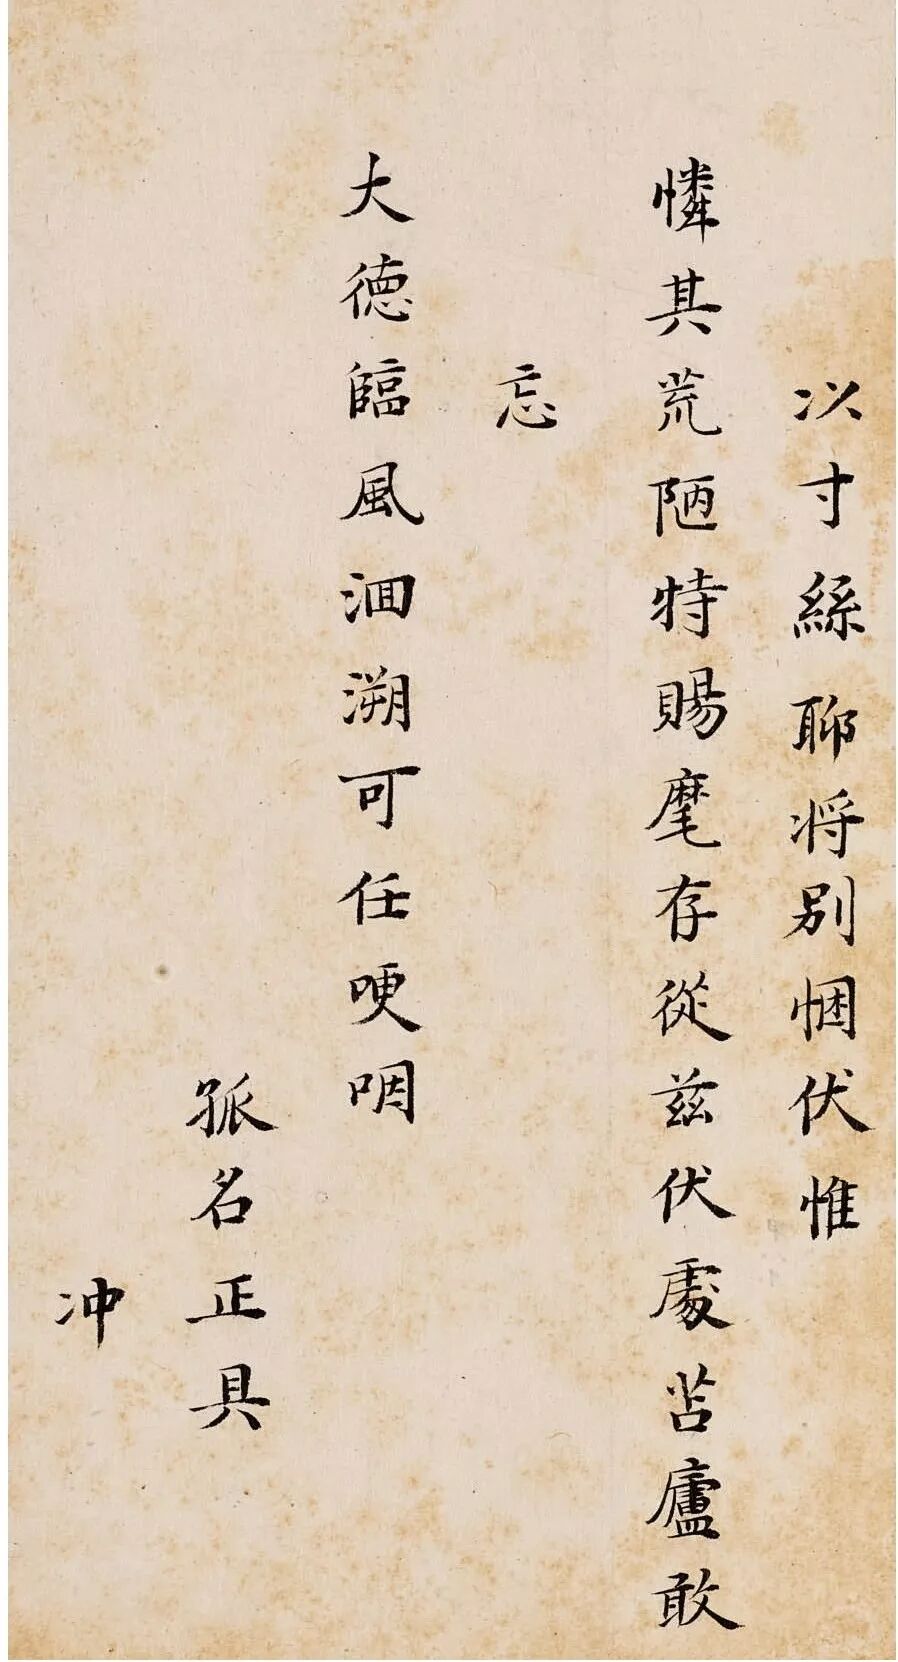 以寸絲聊将别悃伏惟
憐其荒陋特賜麾存從兹伏處苫廬敢
忘
大德臨風洄溯可任哽咽
孤名正具
冲